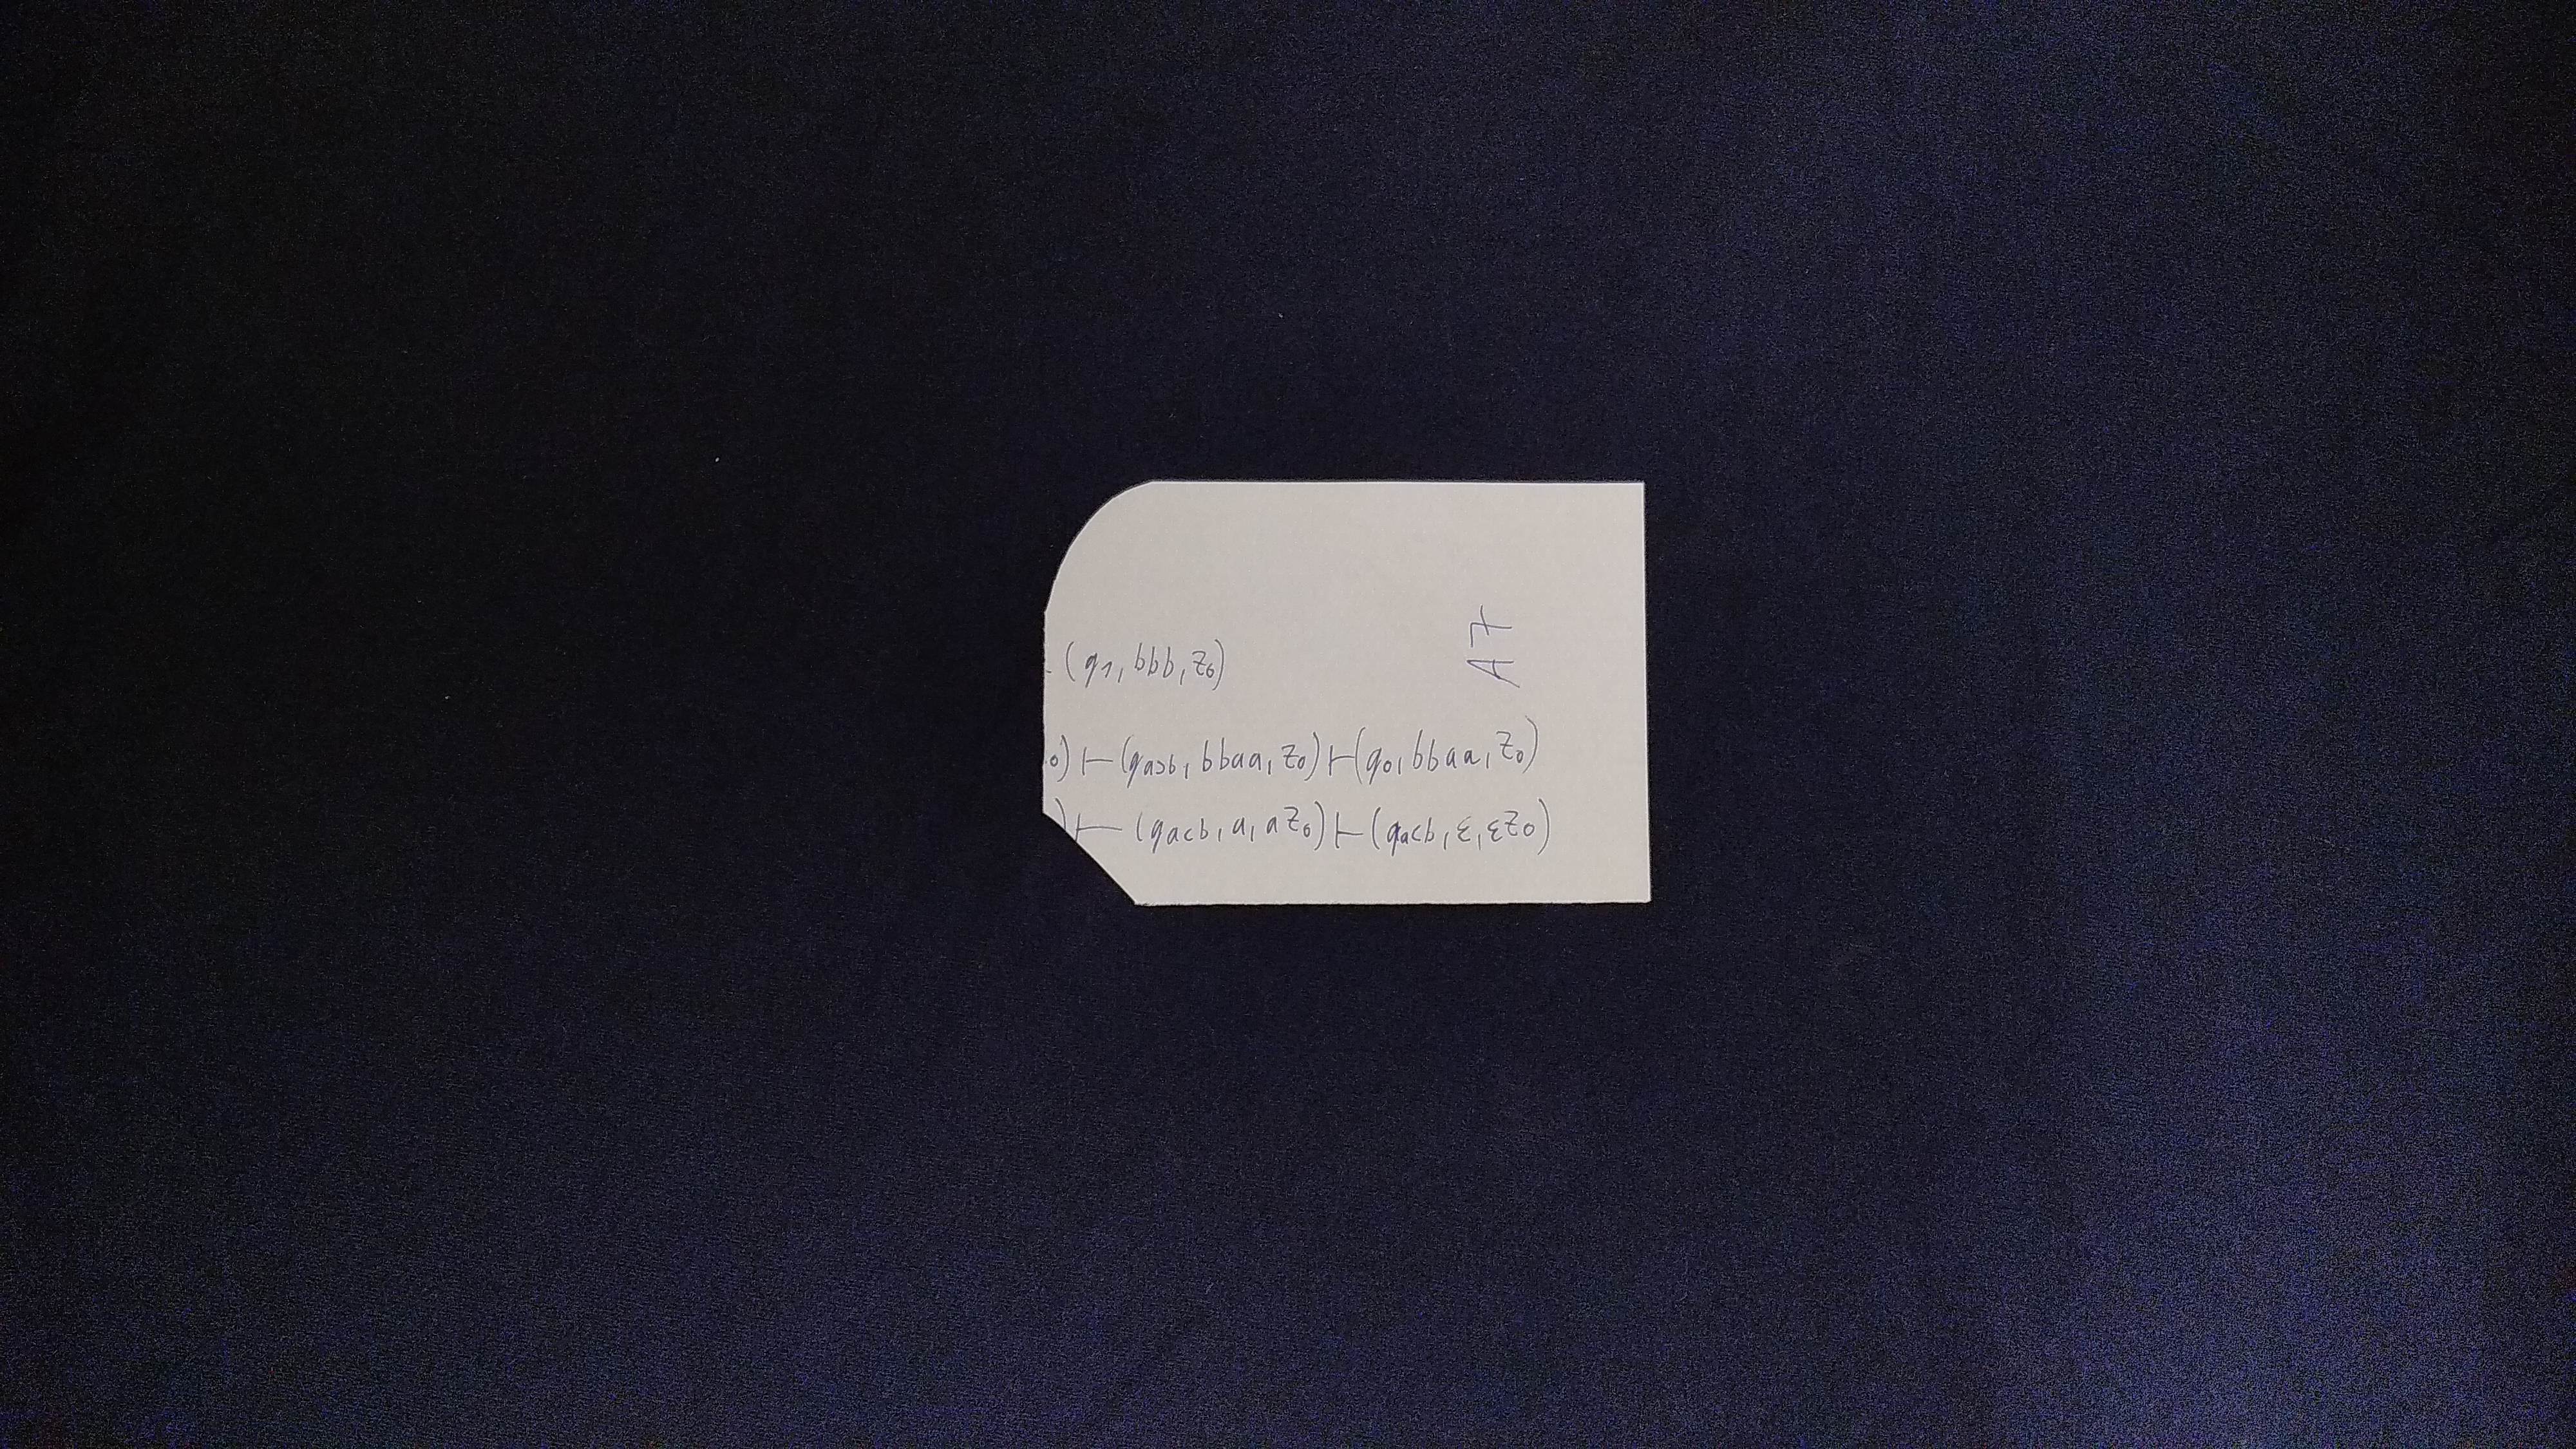 A7
(q1, bbb, z0)
0) ⊢ (qasb, bbaa, z0) ⊢ (q0, bbaa, z0)
) ⊢ (qacb, a, az0) ⊢ (qacb, ε, εz0)